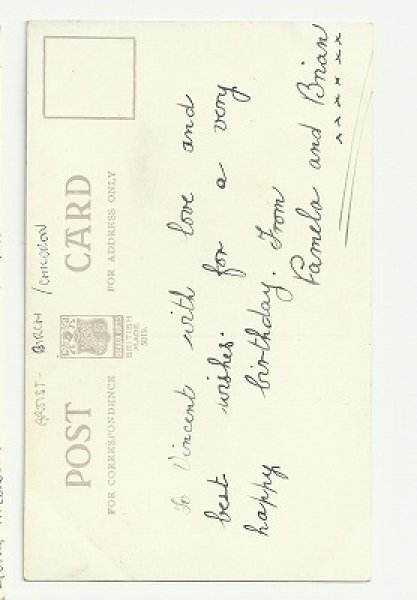 ARTIST- BIRCH / CHILDREN
POST CARD
FOR CORRESPONDENCE
FOR ADDRESS ONLY
BRITISH
MADE
To Vincent with love and
best wishes. for a very
happy birthday. From
Pamela and Brian
x x x x x x x